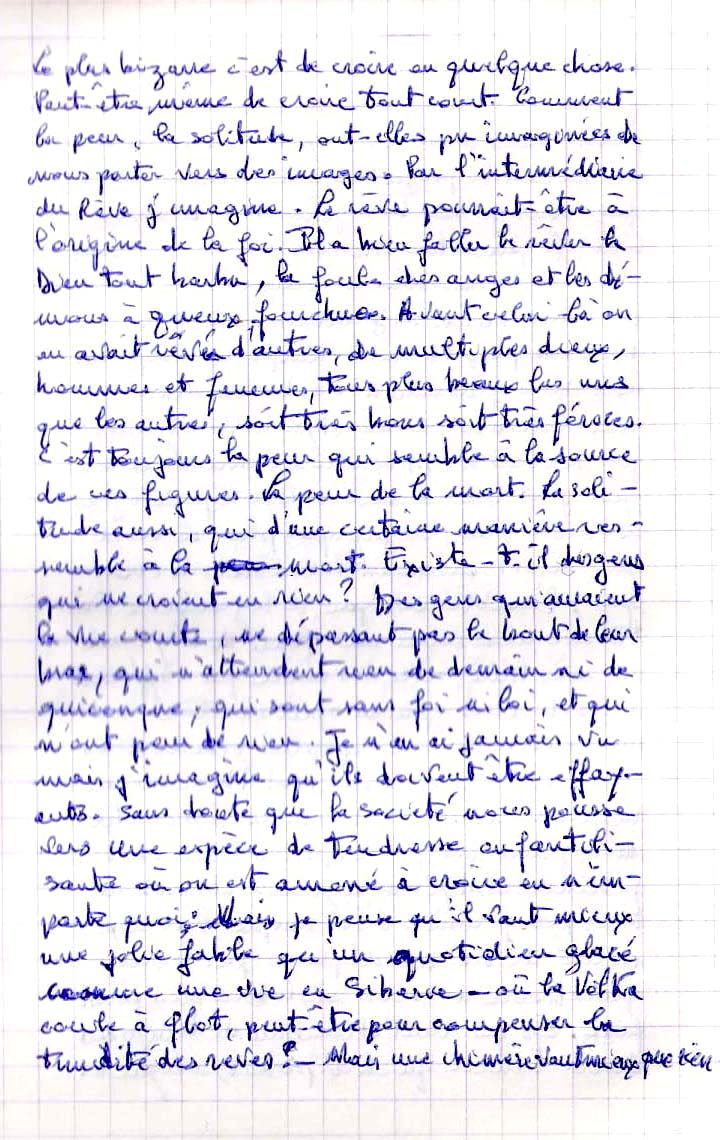 Le plus bizarre c'est de croire en quelque chose.
Peut-être même de croire tout court. Comment
la peur, la solitude, ont-elles pu imaginées de
nous porter vers des images. Par l'intermédiaire
du Rêve j'imagine. Le rêve pourrait-être à
l'origine de la foi. Il a bien fallu le rêver le
Dieu tout barbu, la foule des anges et les dé-
mons à queues fourchues. Avant celui-là on
en avait rêvé d'autres, de multiples dieux,
hommes et femmes, tous plus beaux les uns
que les autres, soit très bons soit très féroces.
C'est toujours la peur qui semble à la source
de ces figures. La peur de la mort. La soli-
tude aussi, qui d'une certaine manière res-
semble à la mort. Existe-t-il des gens
qui ne croient en rien ? Des gens qui auraient
la vue courte, ne dépassant pas le bout de leur
bras, qui n'attendent rien de demain ni de
quiconque, qui sont sans foi ni loi, et qui
n'ont peur de rien. Je n'en ai jamais vu
mais j'imagine qu'ils doivent être effay-
ants. Sans doute que la société nous pousse
vers une espèce de tendresse enfantili-
sante où on est amené à croire en n'im-
porte quoi. Mais je pense qu'il vaut mieux
une jolie fable qu'un quotidien glacé
comme une vie en Sibérie - où la Vodka
coule à flot, peut-être pour compenser la
timidité des rêves ? - Mais une chimère vaut mieux que rien